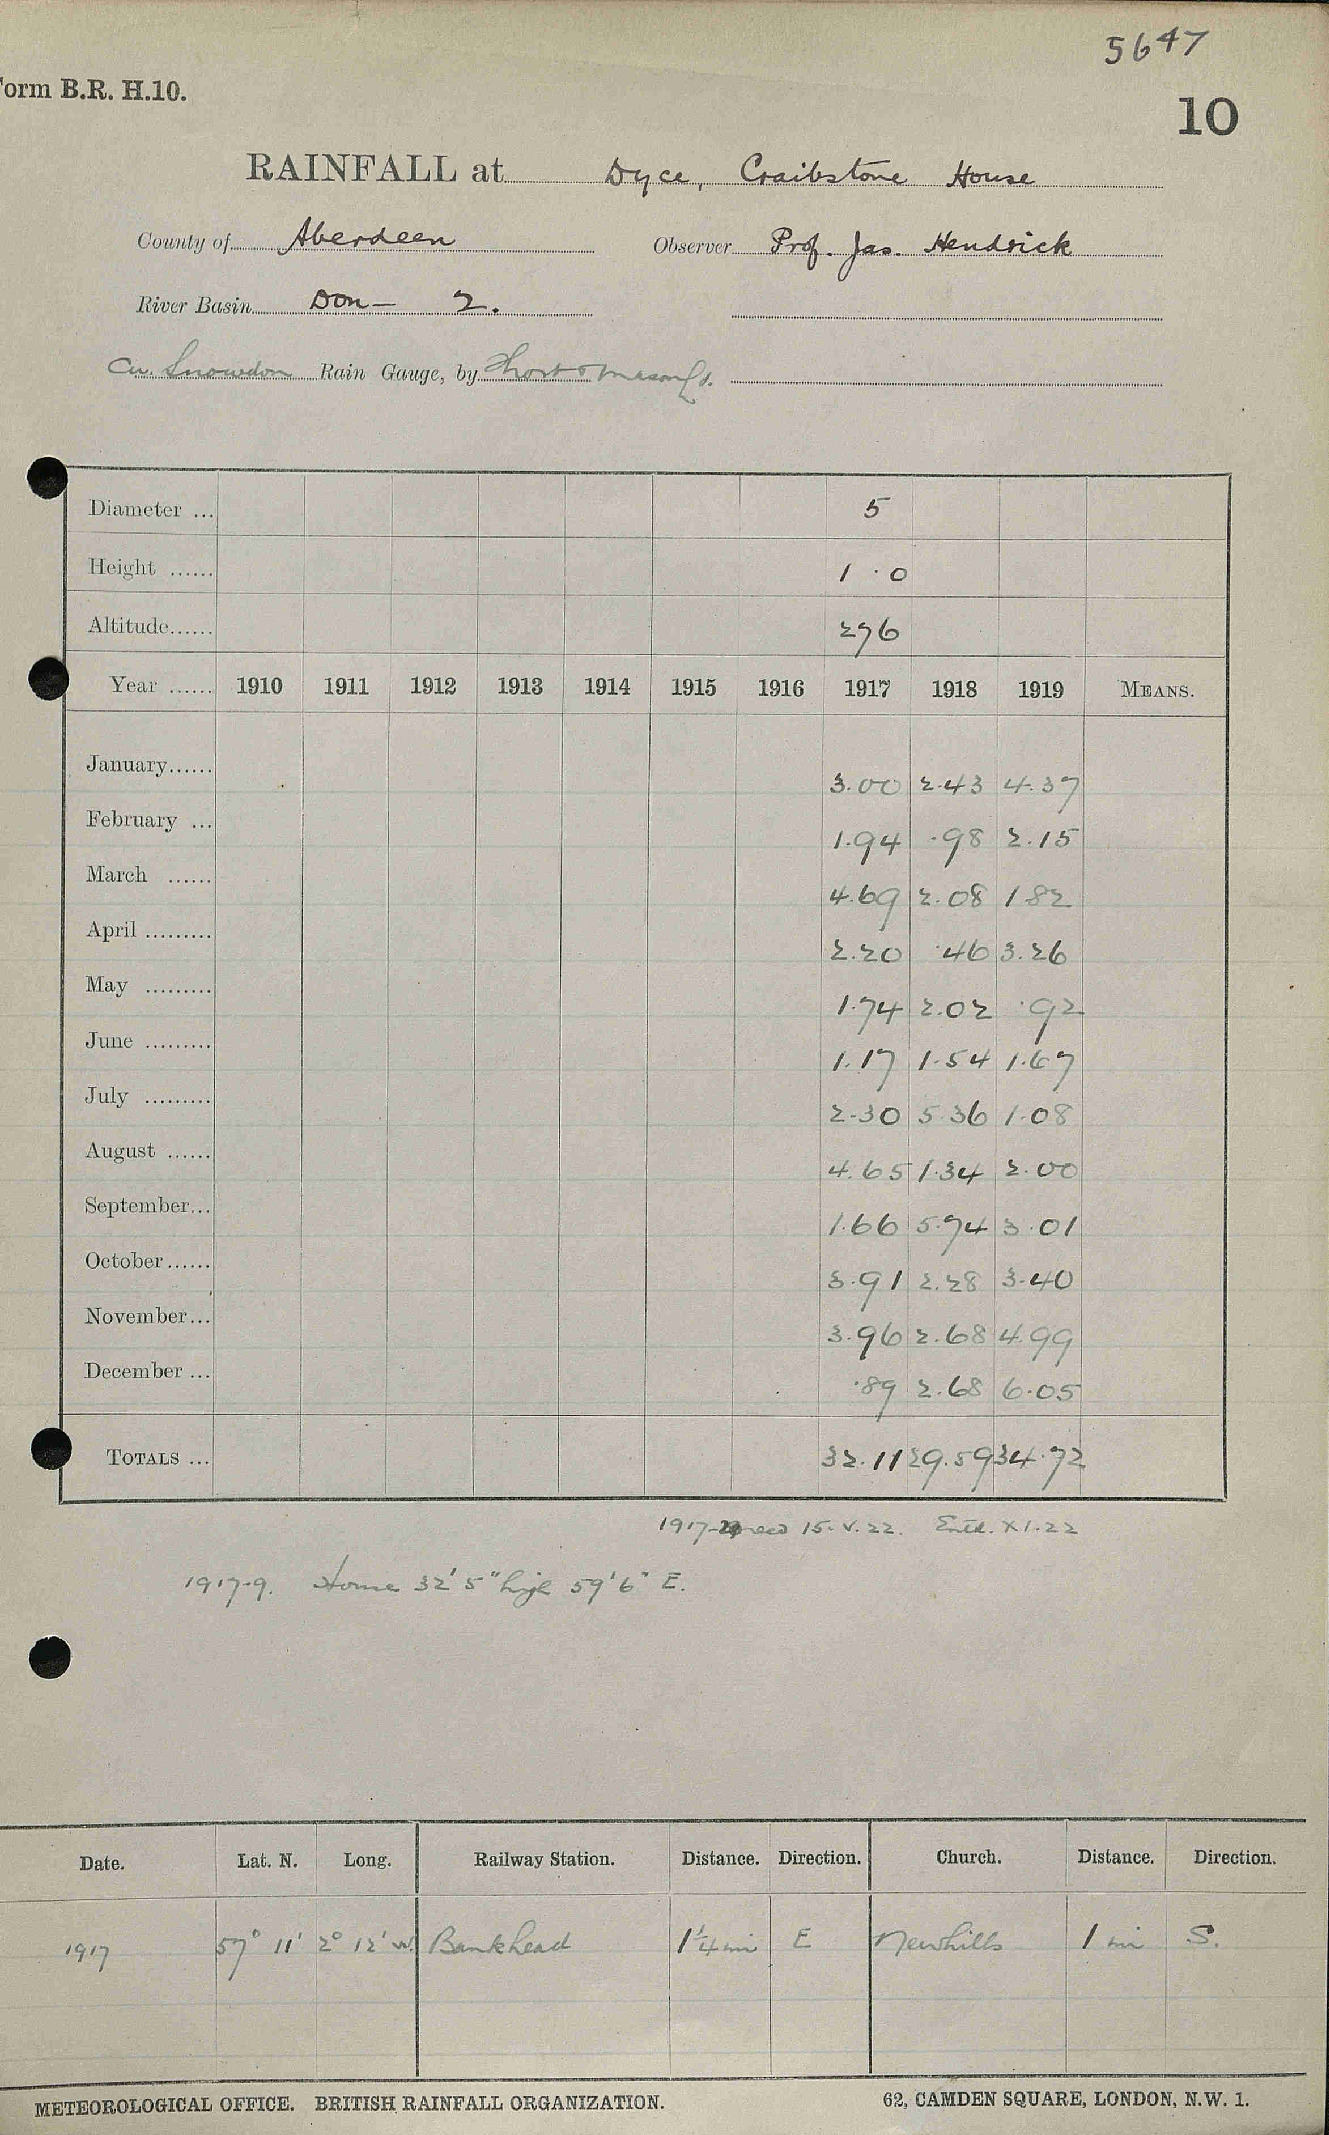 5647
Form B.R. H.10.
10
RAINFALL at Dyce, Craibstone House
County of Aberdeen Observer Prof. Jas. Hendrick
River Basin Don - 2.
Cu. Snowdon Rain Gauge, by Short & Mason Ld.
Diameter ... 5
Height ...... 1 · 0
Altitude...... 276
Year ...... 1910 1911 1912 1913 1914 1915 1916 1917 1918 1919 MEANS.
January...... 3.00 2.43 4.37
February ... 1.94 .98 2.15
March ...... 4.69 2.08 1.82
April ......... 2.20 .46 3.26
May ......... 1.74 2.02 .92
June ......... 1.17 1.54 1.67
July ......... 2.30 5.36 1.08
August ...... 4.65 1.34 2.00
September... 1.66 5.74 3.01
October...... 3.91 2.28 3.40
November... 3.96 2.68 4.99
December ... .89 2.68 6.05
TOTALS ... 32.11 29.59 34.72
1917- recd 15.V.22. Entd. XI.22
1917-9. House 32' 5" high 59' 6" E.
Date. Lat. N. Long. Railway Station. Distance. Direction. Church. Distance. Direction.
1917 57° 11' 2° 12' W. Bankhead 1¼ mi E Newhills 1 mi S.
METEOROLOGICAL OFFICE. BRITISH RAINFALL ORGANIZATION. 62, CAMDEN SQUARE, LONDON, N.W. 1.